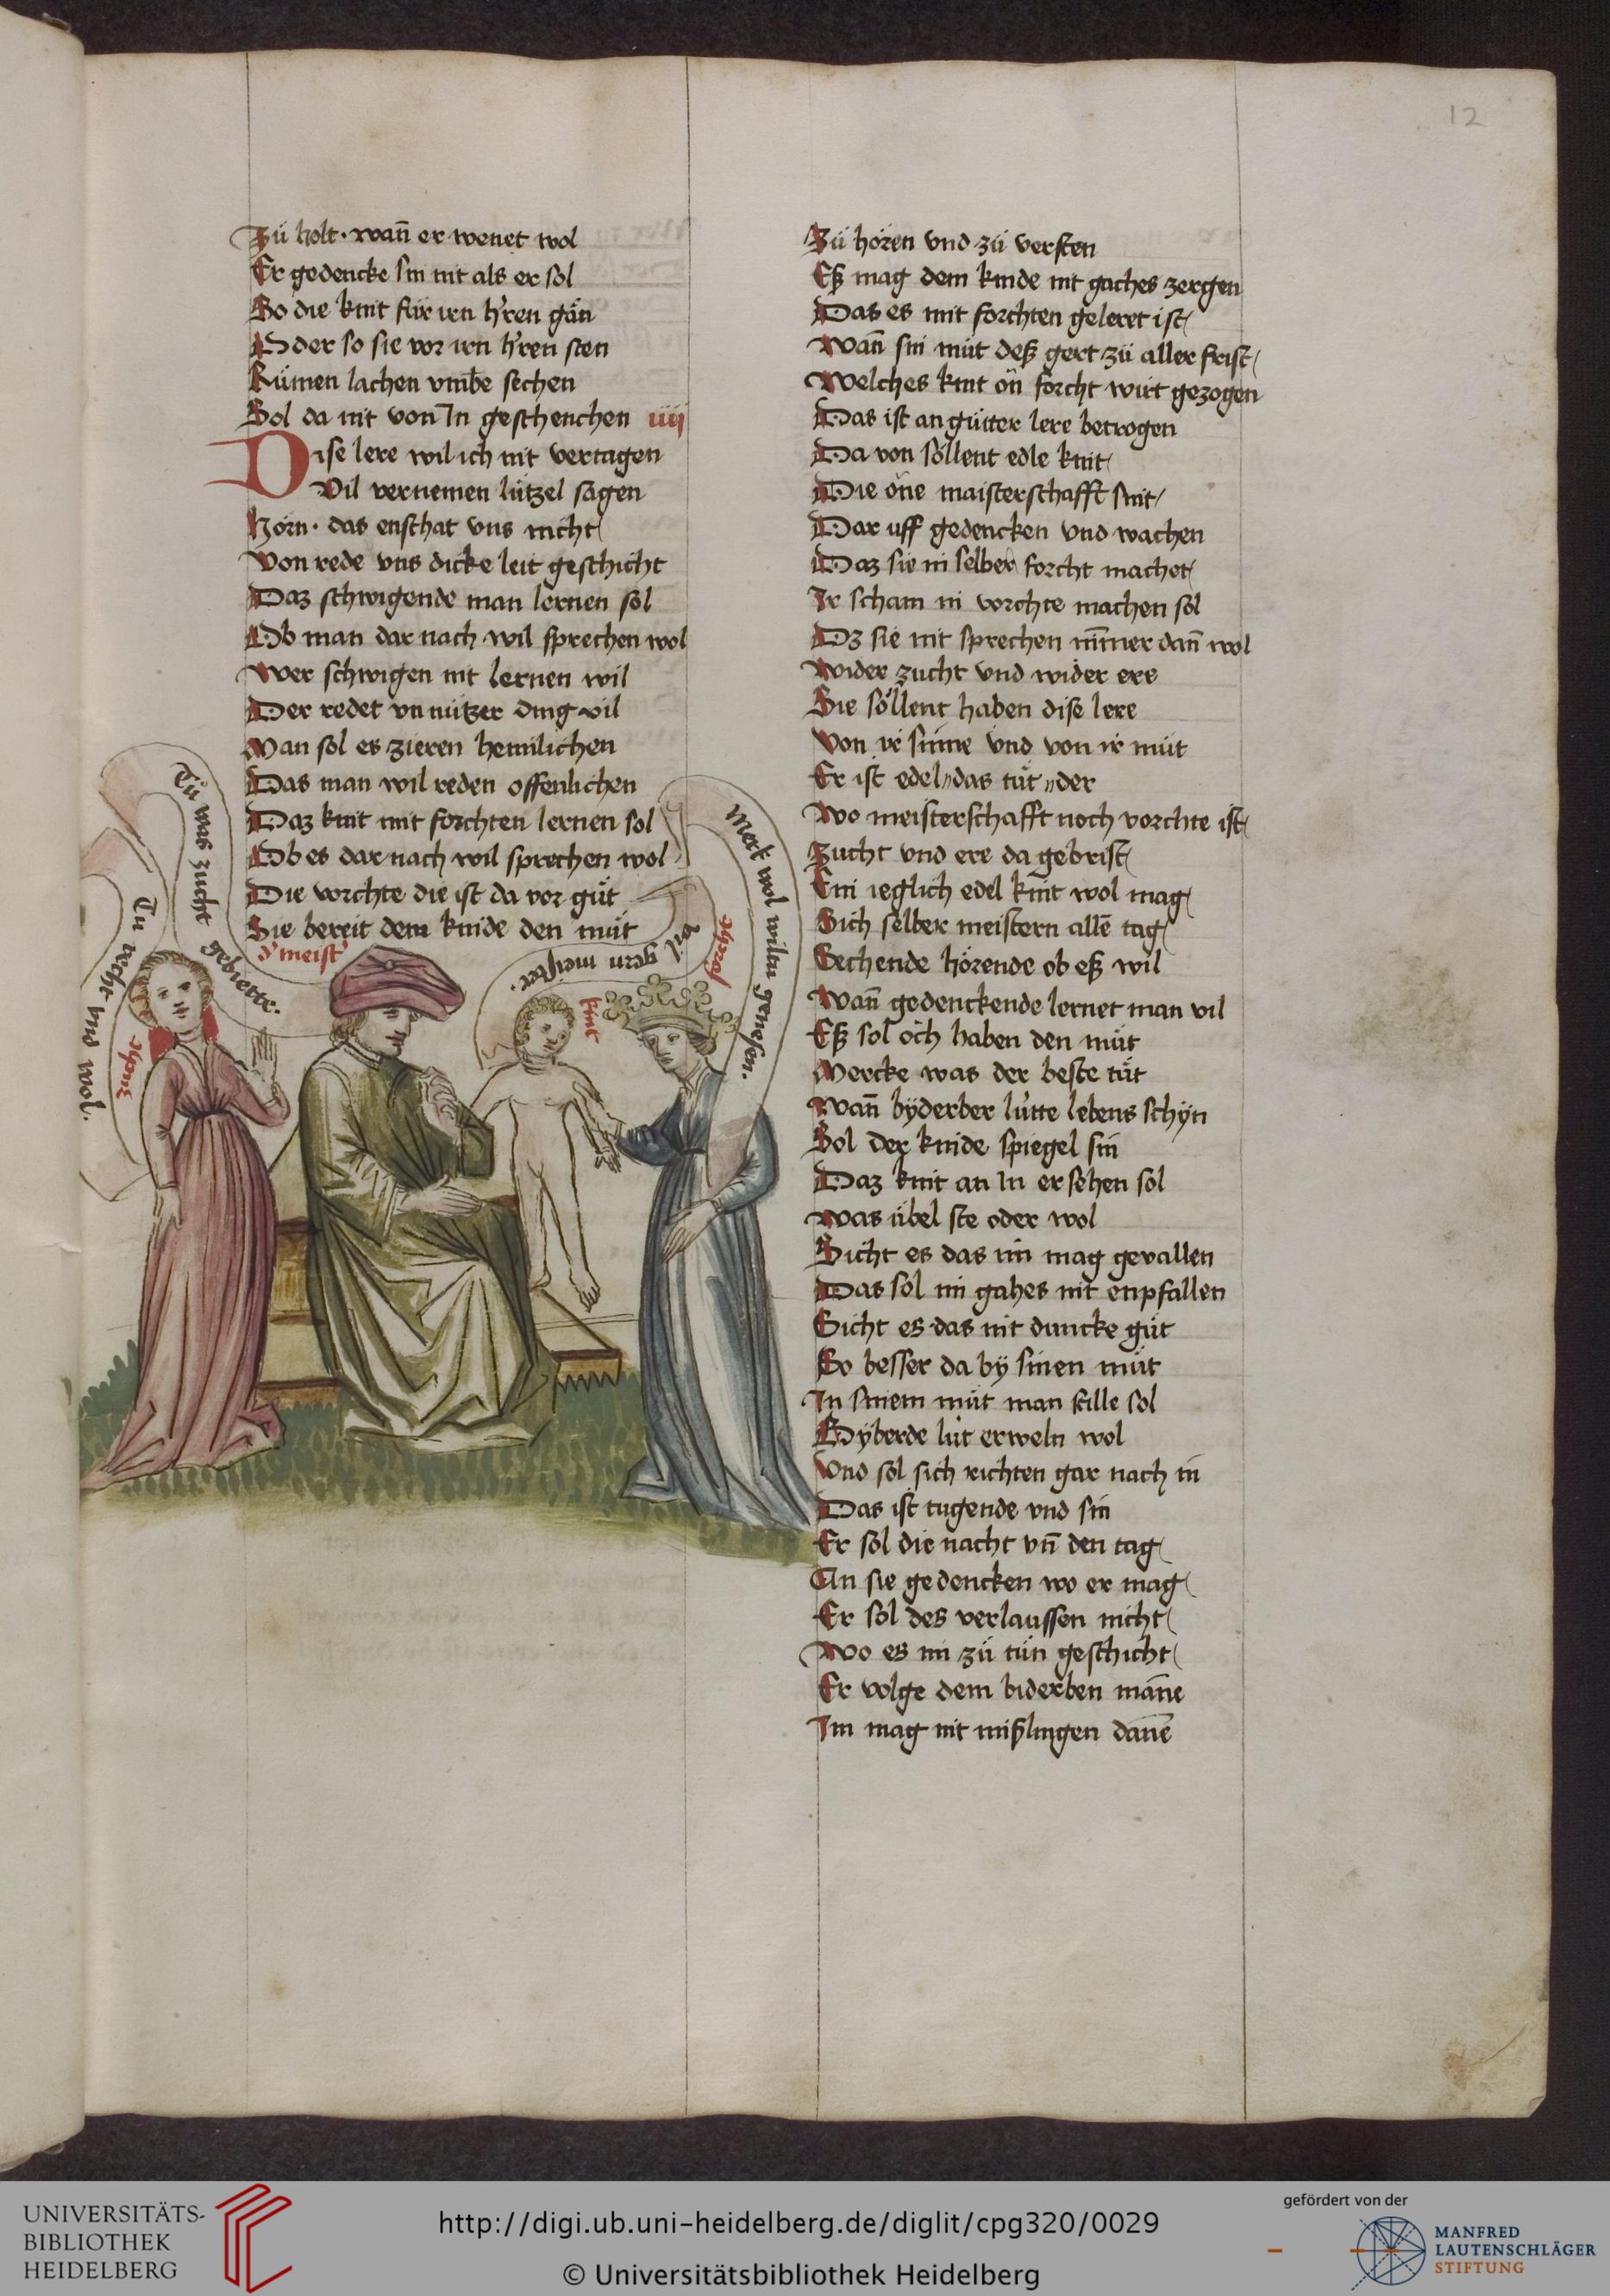 12
Zü holt · wann̄ er wenet wol
Er gedencke sin nit als er sol
So die kint für iren h'ren gän
Oder so sie vor irn h'ren sten
Rümen lachen vmbe sechen
Sol da nit von In geschenchen iiij
Dise lere wil ich nit vertagen
Vil vernemen lützel sagen
Hörn · das enschat vns nicht
Von rede vns dicke leit geschicht
Daz schwigende man lernen sol
Ob man dar nach wil sprechen wol
Wer schwigen nit lernen wil
Der redet vnnützer ding vil
Man sol es zieren hemilichen
Das man wil reden offenlichen
Daz kint mit forchten lernen sol
Ob es dar nach wil sprechen wol
Die vorchte die ist da vor güt
Sie bereit dem kinde den müt
Tu recht vnd wol.
Tü was zucht gebiette.
d' meist'
wil gern meister.
kint
Merk wol wiltu genesen.
Zü hören vnd zü versten
Eß mag dem kinde nit gaches zergen
Das es mit forchten geleret ist
Wann̄ sin müt deß gert zü aller frist
Welches kint ön forcht wirt gezogen
Das ist an gütter lere betrogen
Da von söllent edle kint
Die öne maisterschafft sint
Dar uff gedencken vnd wachen
Daz sie in selber forcht machet
Ir scham in vorchte machen sol
Dz sie nit sprechen nim̄er dann̄ wol
Wider zucht vnd wider ere
Sie söllent haben dise lere
Von ir sinne vnd von ir müt
Er ist edel das tüt der
Wo meisterschafft noch vorchte ist
Zucht vnd ere da gebrist
Ein ieglich edel kint wol mag
Sich selber meistern allē tag
Sechende hörende ob eß wil
Wann̄ gedenckende lernet man vil
Eß sol öch haben den müt
Mercke was der beste tüt
Wann̄ byderber lütte lebens schyn
Sol der kinde spiegel sin
Daz kint an In ersehen sol
Was übel ste oder wol
Sicht es das im mag gevallen
Das sol im gahes nit enpfallen
Sicht es das nit duncke güt
So besser da by sinen müt
In sinem müt man stille sol
Byderbe lüt erweln wol
Vnd sol sich richten gar nach in
Das ist tugende vnd sin
Er sol die nacht vn̄ den tag
An sie gedencken wo er mag
Er sol des verlaussen nicht
Wo es im zü tün geschicht
Er volge dem biderben māne
Im mag nit mißlingen danē
UNIVERSITÄTS-
BIBLIOTHEK
HEIDELBERG
http://digi.ub.uni-heidelberg.de/diglit/cpg320/0029
© Universitätsbibliothek Heidelberg
gefördert von der
MANFRED
LAUTENSCHLÄGER
STIFTUNG